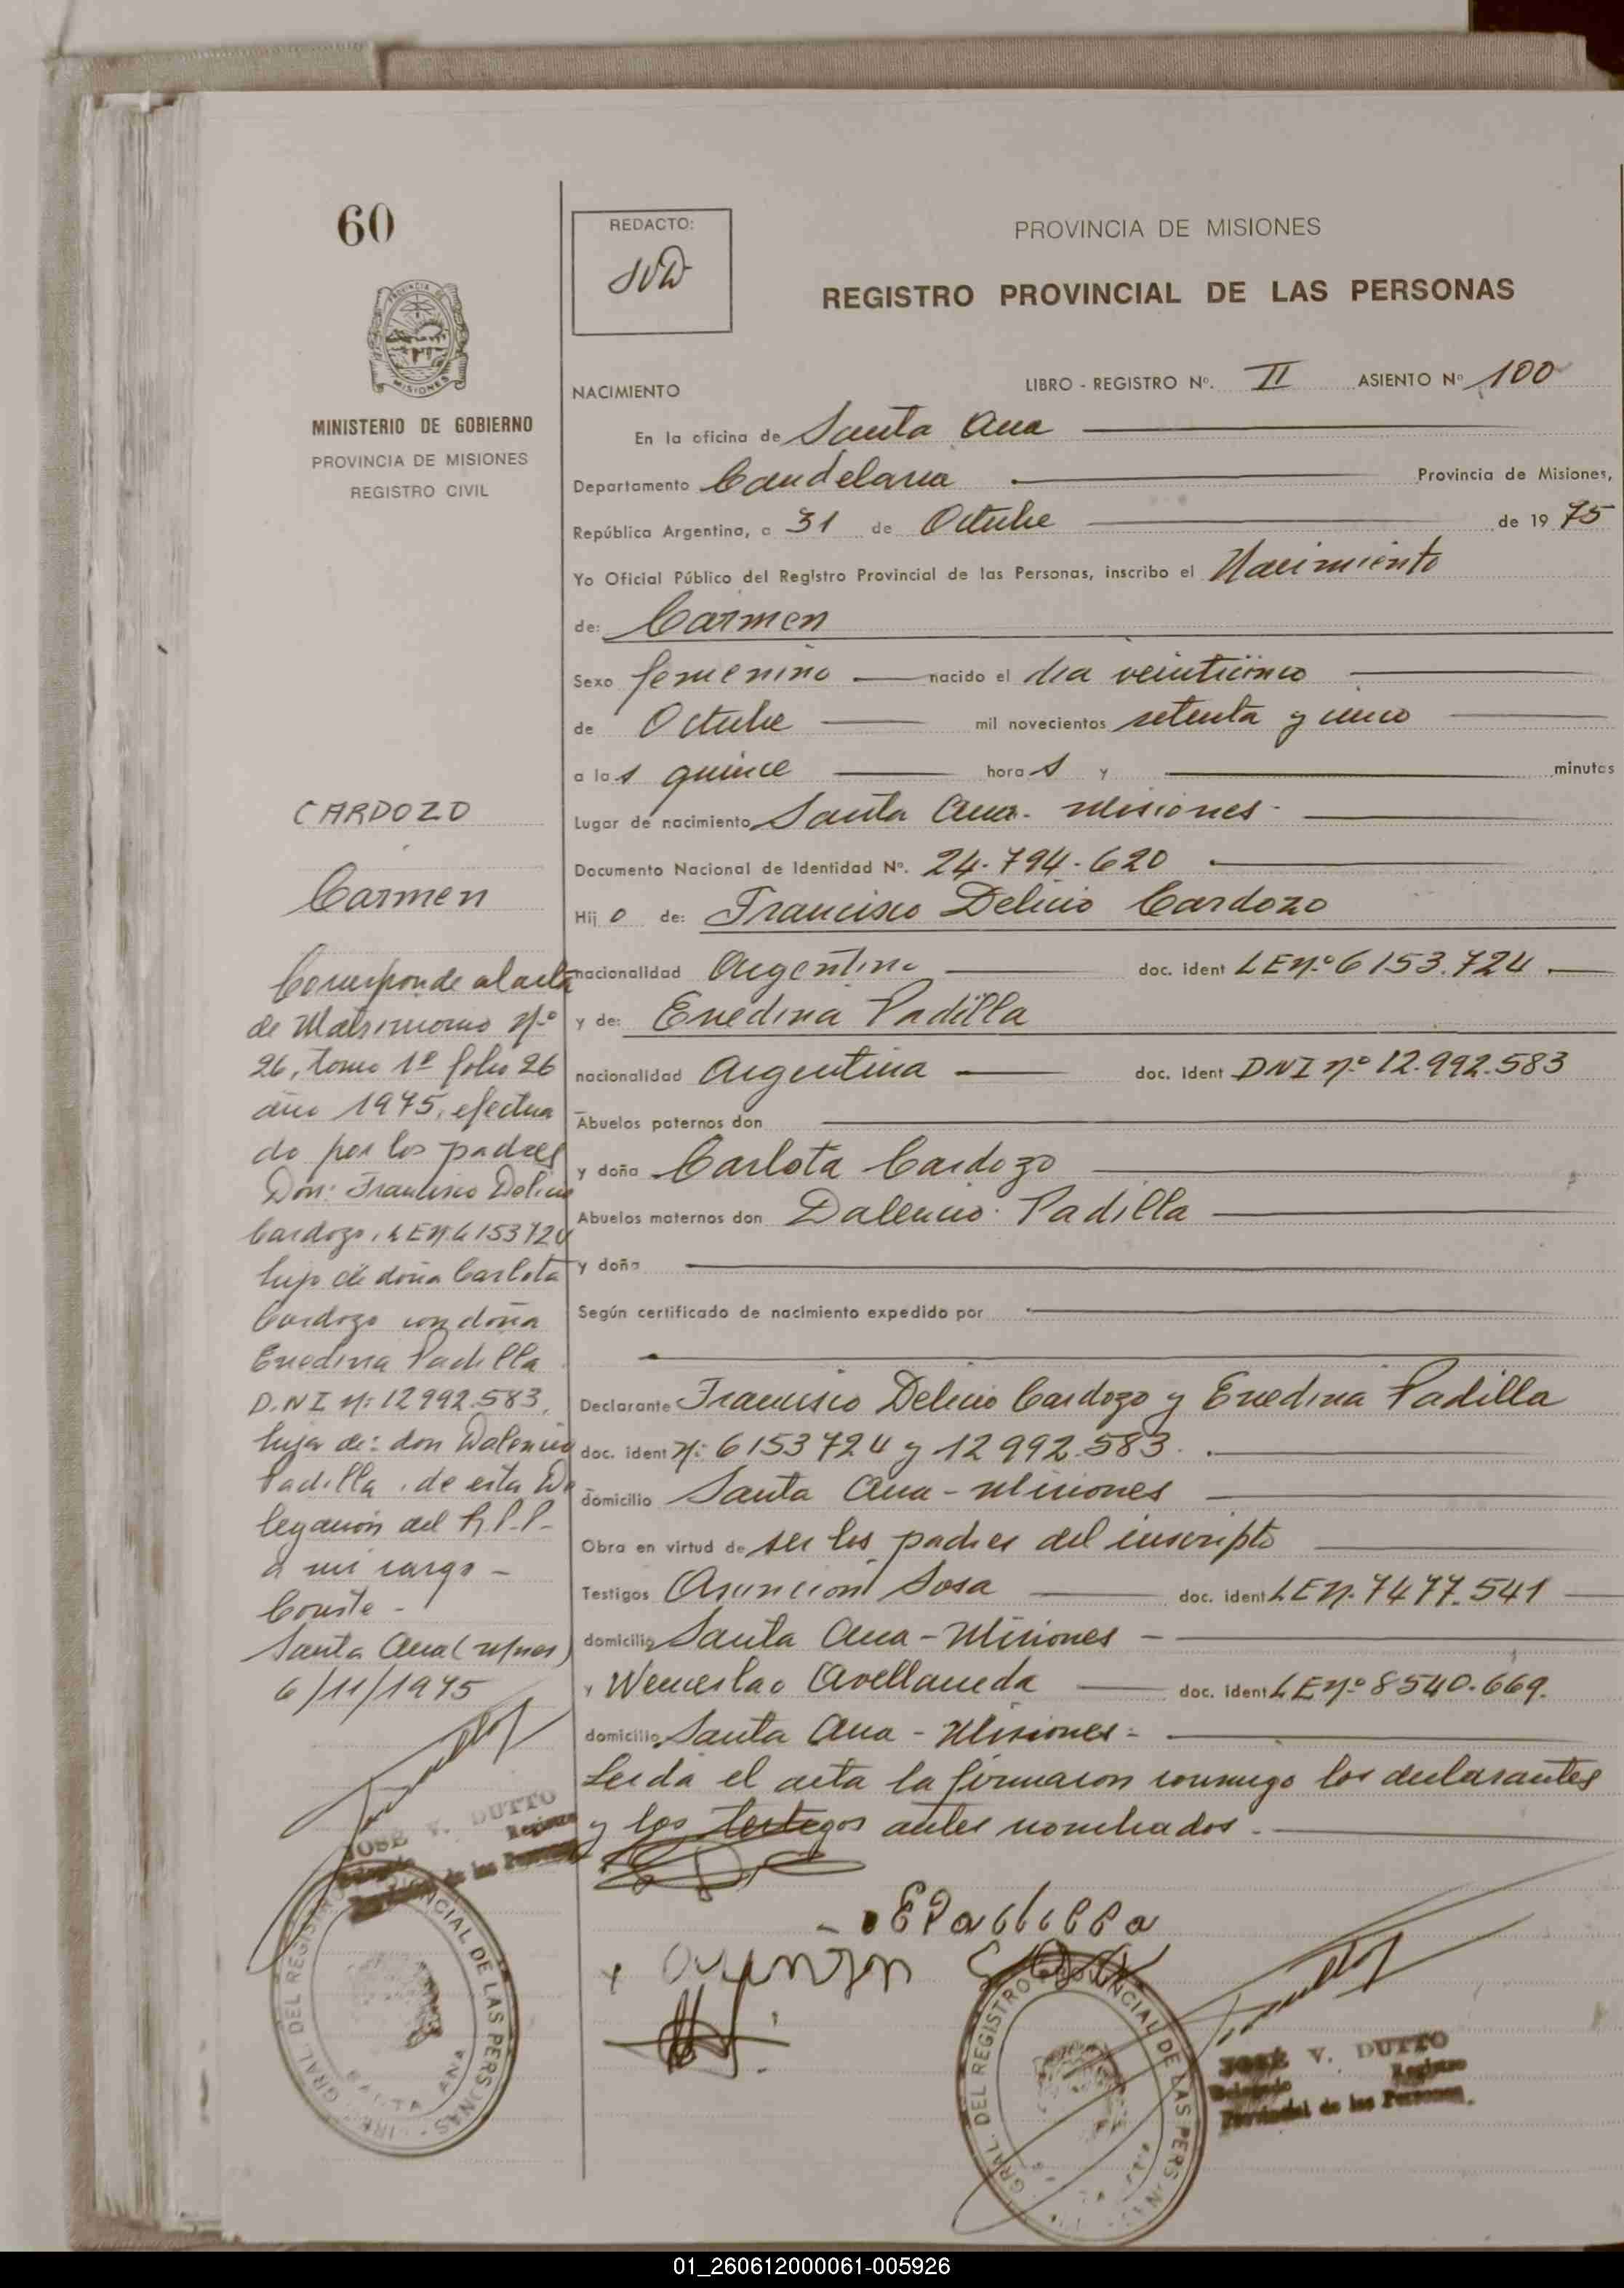 60
REDACTO:
PROVINCIA DE MISIONES
REGISTRO PROVINCIAL DE LAS PERSONAS
PROVINCIA DE
MISIONES
MINISTERIO DE GOBIERNO
PROVINCIA DE MISIONES
REGISTRO CIVIL
NACIMIENTO
LIBRO - REGISTRO Nº. II ASIENTO Nº 100
En la oficina de Santa Ana
Departamento Candelaria Provincia de Misiones,
República Argentina, a 31 de Octubre de 1975
Yo Oficial Público del Registro Provincial de las Personas, inscribo el Nacimiento
de: Carmen
Sexo femenino nacido el dia veinticinco
de Octubre mil novecientos setenta y cinco
a las quince horas y minutos
Lugar de nacimiento Santa Ana - Misiones -
Documento Nacional de Identidad Nº. 24.794.620
Hijo de: Francisco Delicio Cardozo
nacionalidad Argentino doc. ident LE nº 6153.724
y de: Enedina Padilla
nacionalidad Argentina doc. ident DNI nº 12.992.583
Abuelos paternos don
y doña Carlota Cardozo
Abuelos maternos don Dalencio Padilla
y doña
Según certificado de nacimiento expedido por
Declarante Francisco Delicio Cardozo y Enedina Padilla
doc. ident nº: 6153724 y 12992.583.
domicilio Santa Ana - Misiones
Obra en virtud de ser los padres del inscripto
Testigos Asuncion Sosa doc. ident LE n. 7477.541
domicilio Santa Ana - Misiones -
y Wenceslao Avellaneda doc. ident LE nº 8540.669.
domicilio Santa Ana - Misiones -
Leida el acta la firmaron conmigo los declarantes
y los testigos antes nombrados.
EPadilla
JOSÉ V. DUTTO
Delegado Registro
Provincial de las Personas
CARDOZO
Carmen
Corresponde al acta
de Matrimonio nº
26, tomo 1º folio 26
año 1975, efectua
do por los padres
Don: Francisco Delicio
Cardozo, LE N. 6153724
hijo de doña Carlota
Cardozo con doña
Enedina Padilla
D.N I nº: 12992.583,
hija de: don Dalencio
Padilla, de esta De
legación del R.P.P.
a mi cargo -
Conste -
Santa Ana (Mnes)
6/11/1975
JOSÉ V. DUTTO
Delegado Registro
Provincial de las Personas
GRAL. DEL REGISTRO PROVINCIAL DE LAS PERSONAS
SANTA ANA
GRAL. DEL REGISTRO PROVINCIAL DE LAS PERSONAS
01_260612000061-005926